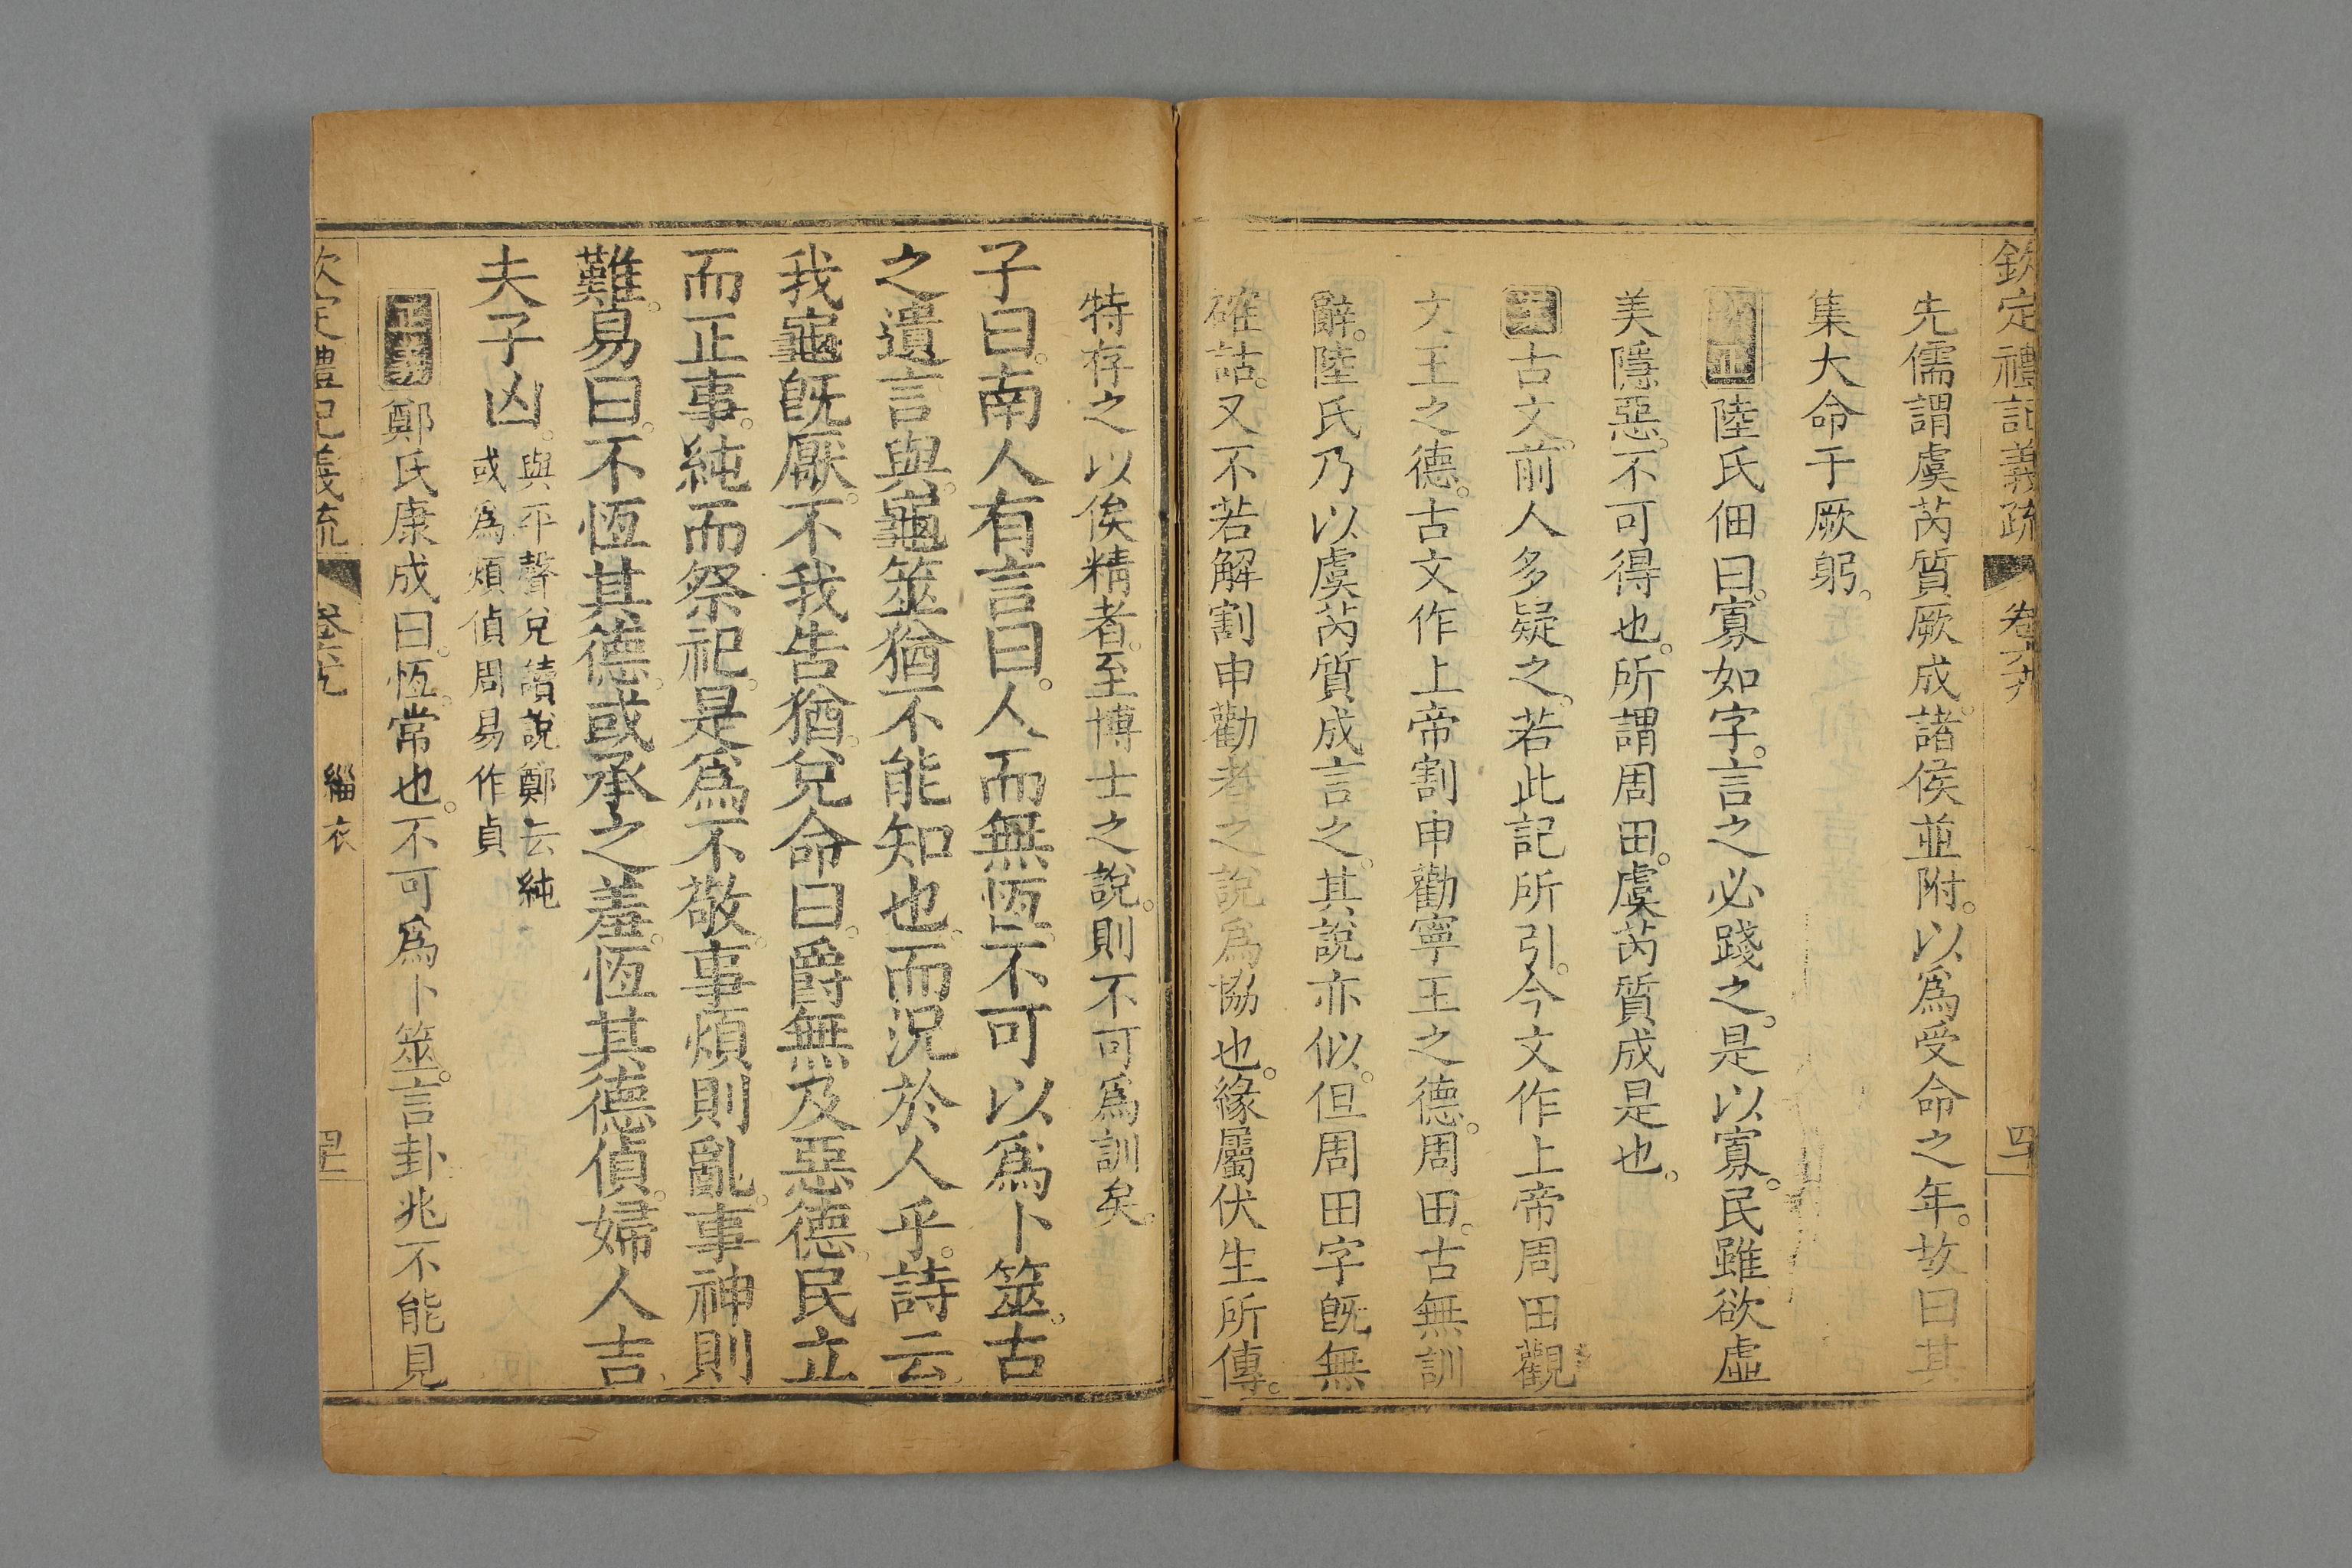 欽定禮記義疏 卷六十九 四十
先儒謂虞芮質厥成。諸侯並附。以爲受命之年。故曰其
集大命于厥躬。
正陸氏佃曰。寡如字。言之必踐之。是以寡。民雖欲虛
美隱惡。不可得也。所謂周田。虞芮質成是也。
古文。前人多疑之。若此記所引。今文作上帝周田觀
文王之德。古文作上帝割申勸寧王之德。周田。古無訓
辭。陸氏乃以虞芮質成言之。其說亦似。但周田字旣無
確詁。又不若解割申勸者之說爲協也。緣屬伏生所傳。
特存之以俟精者。至博士之說。則不可爲訓矣。
子曰。南人有言曰。人而無恆。不可以爲卜筮。古
之遺言與。龜筮猶不能知也。而況於人乎。詩云。
我龜旣厭。不我告猶。兌命曰。爵無及惡德。民立
而正事。純而祭祀。是爲不敬。事煩則亂。事神則
難。易曰。不恆其德。或承之羞。恆其德偵。婦人吉。
夫子凶。與平聲兌讀說鄭云純
或爲煩偵周易作貞
正義鄭氏康成曰。恆。常也。不可爲卜筮。言卦兆不能見
欽定禮記義疏 卷六十九 緇衣 四十一